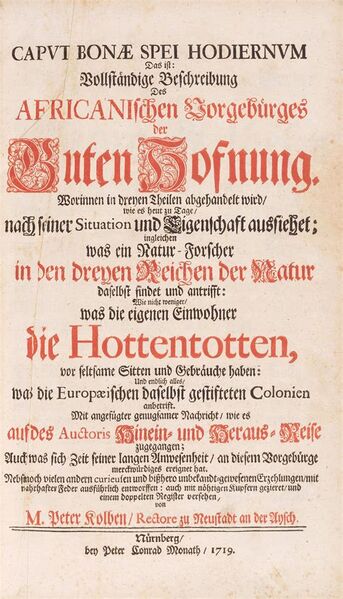 CAPVT BONÆ SPEI HODIERNVM
Das ist:
Vollständige Beschreibung
Des
AFRICANIschen Vorgebürges
der
Guten Hofnung.
Worinnen in dreyen Theilen abgehandelt wird/
wie es heut zu Tage/
nach seiner Situation und Eigenschaft aussiehet;
ingleichen
was ein Natur-Forscher
in den dreyen Reichen der Natur
daselbst findet und antrifft:
Wie nicht weniger/
was die eigenen Einwohner
die Hottentotten,
vor seltsame Sitten und Gebräuche haben:
Und endlich alles/
was die Europæischen daselbst gestifteten Colonien
anbetrift.
Mit angefügter genugsamer Nachricht/ wie es
auf des Auctoris Hinein- und Heraus-Reise
zugegangen;
Auch was sich Zeit seiner langen Anwesenheit/ an diesem Vorgebürge
merckwürdiges ereignet hat.
Nebst noch vielen andern curieusen und bißhero unbekandt-gewesenen Erzehlungen/ mit
wahrhafter Feder ausführlich entworffen: auch mit nöthigen Kupfern gezieret/ und
einem doppelten Register versehen/
von
M. Peter Kolben/ Rectore zu Neustadt an der Aysch.
Nürnberg/
bey Peter Conrad Monath/ 1719.